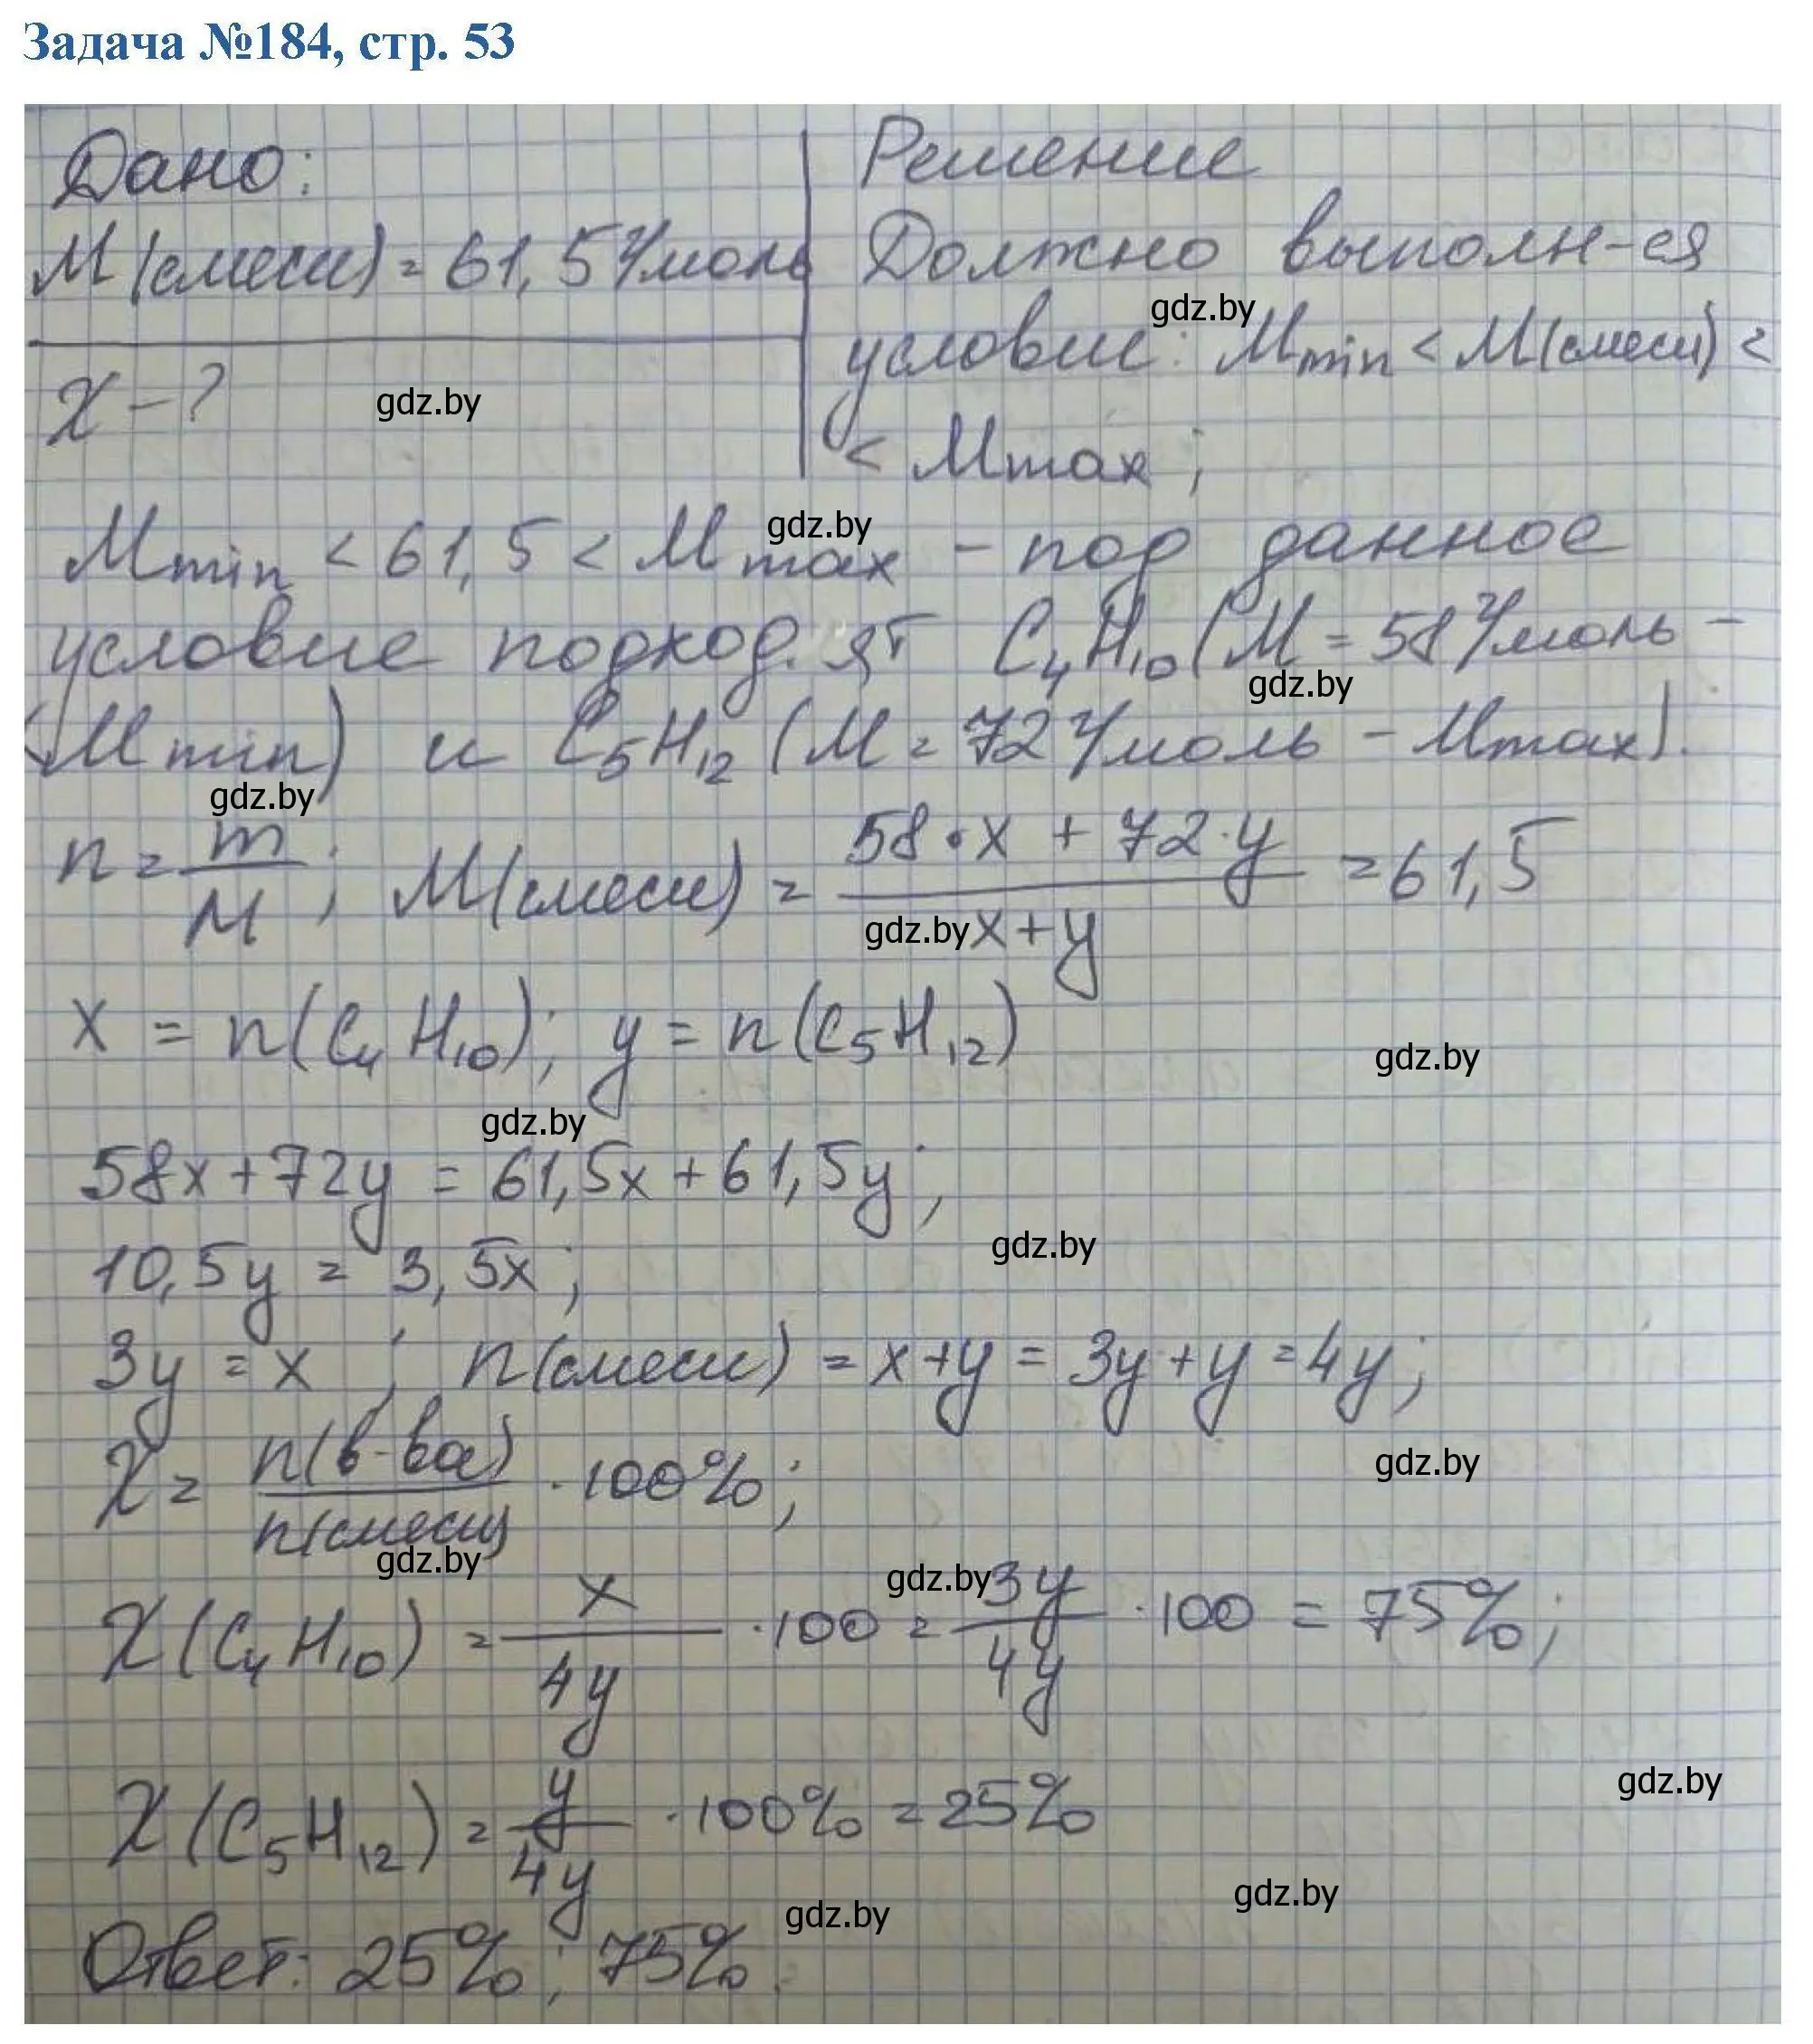 Задача №184, стр. 53
Дано:
M(смеси) = 61,5 г/моль
χ - ?
gdz.by
Решение
Должно выполн-ся
gdz.by
условие: Mmin < M(смеси) <
< Mmax ;
gdz.by
Mmin < 61,5 < Mmax - под данное
условие подход.ят C₄H₁₀ (M = 58 г/моль -
gdz.by
(Mmin) и C₅H₁₂ (M = 72 г/моль - Mmax).
gdz.by
n = m/M ; M(смеси) = (58·x + 72·y)/(x+y) = 61,5
gdz.by
x = n(C₄H₁₀); y = n(C₅H₁₂)
gdz.by
gdz.by
58x + 72y = 61,5x + 61,5y ;
gdz.by
10,5y = 3,5x ;
3y = x ; n(смеси) = x+y = 3y+y = 4y ;
χ = n(в-ва)/n(смеси) · 100% ;
gdz.by
gdz.by
gdz.by
χ(C₄H₁₀) = x/4y · 100 = 3y/4y · 100 = 75% ;
gdz.by
χ(C₅H₁₂) = y/4y · 100% = 25%
gdz.by
gdz.by
Ответ: 25% ; 75%.